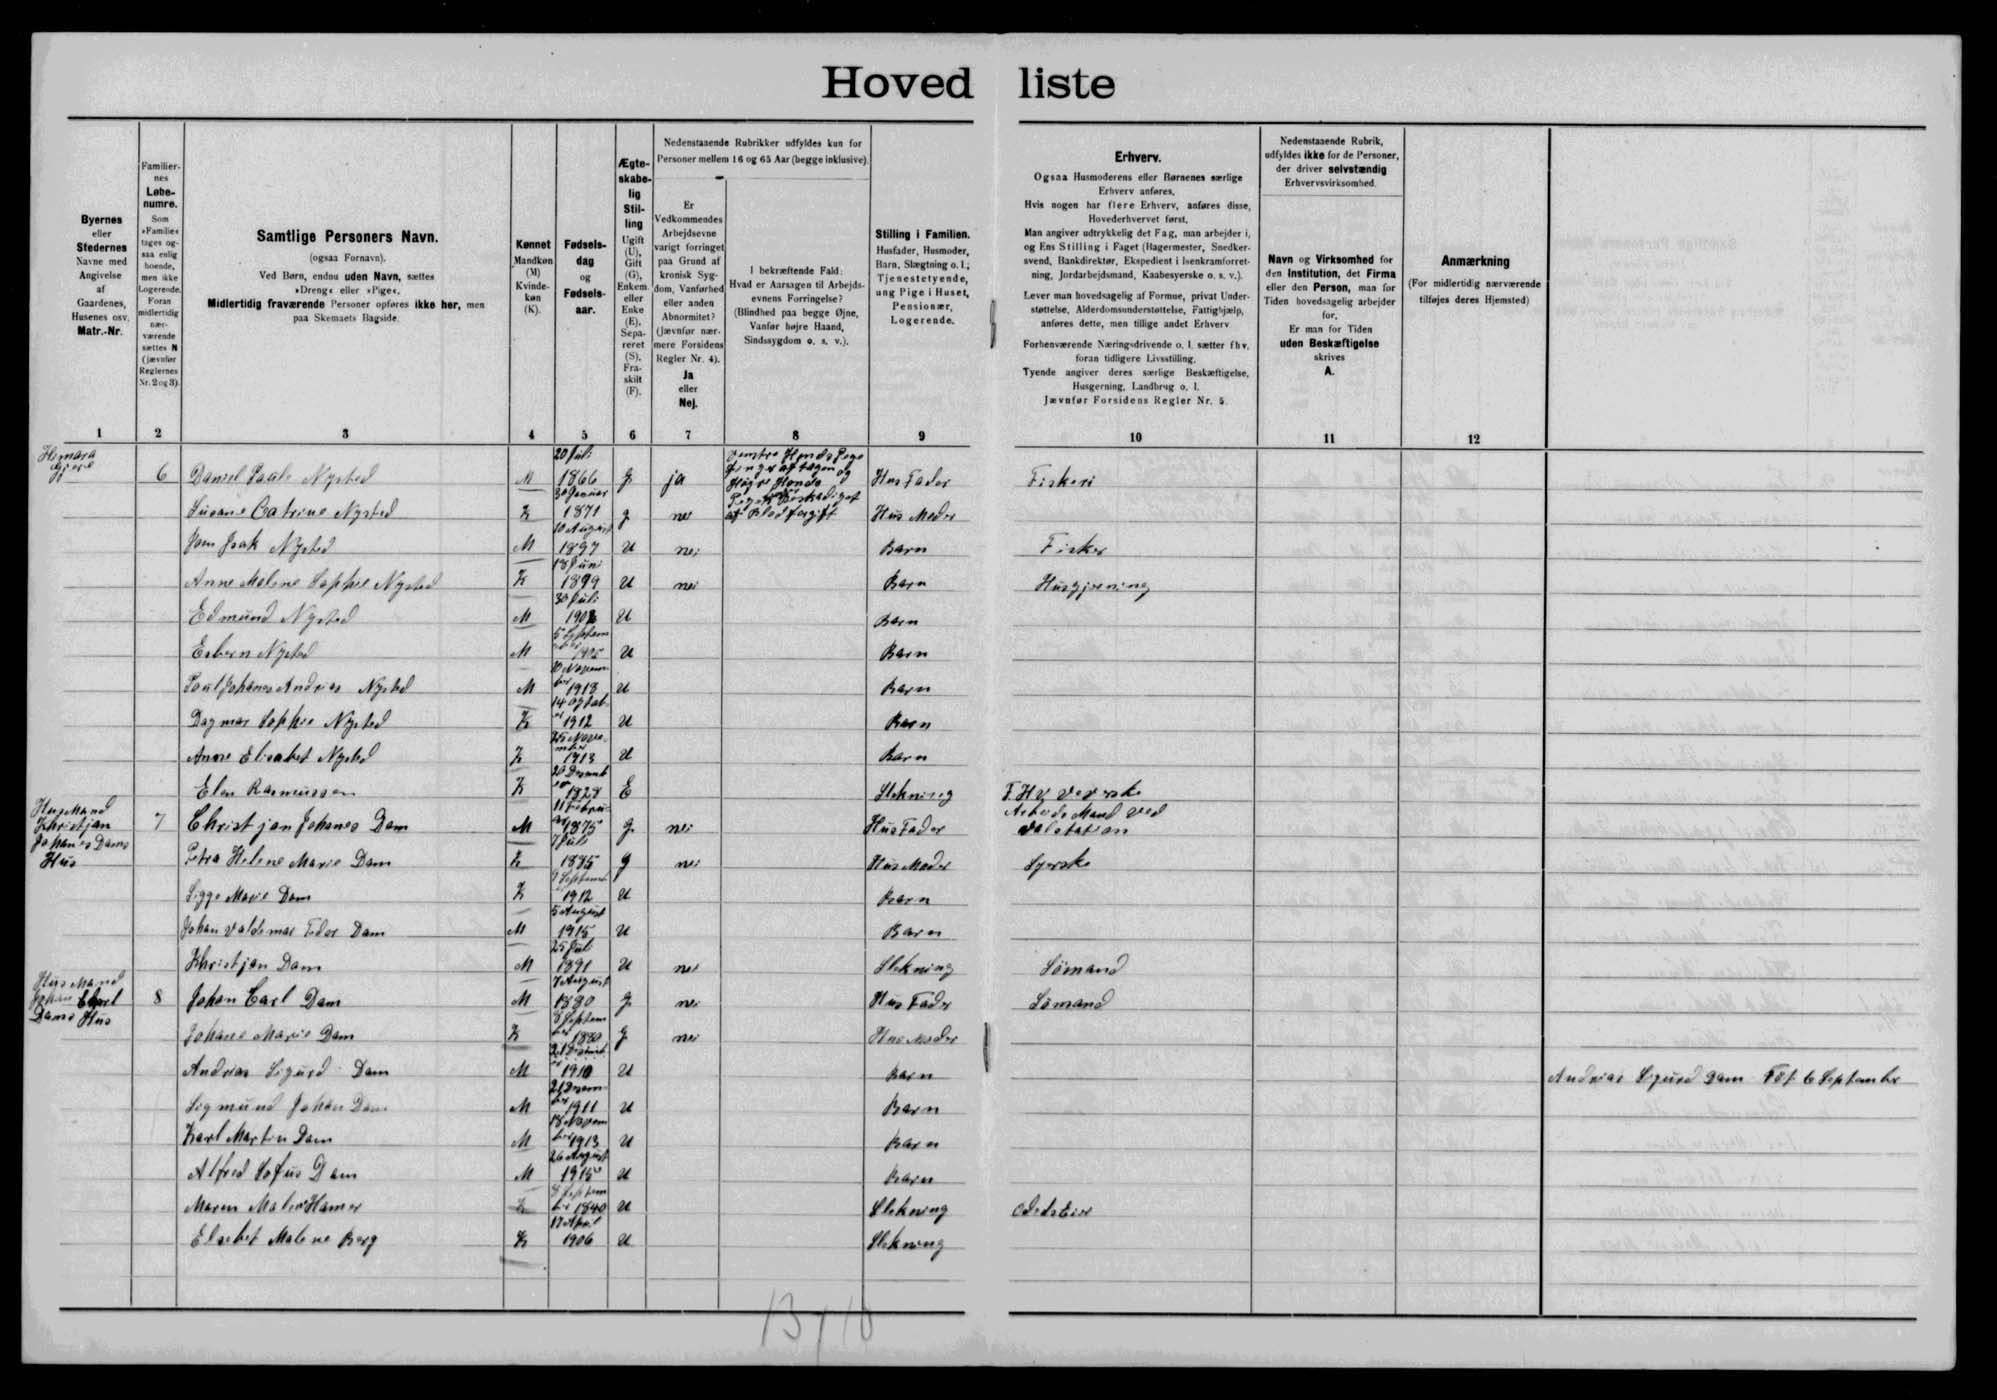 Hovedliste
Byernes
eller
Stedernes
Navne med
Angivelse
af
Gaardenes,
Husenes osv.
Matr.-Nr.
Familier-
nes
Løbe-
numre.
Som
»Familie«
tages og-
saa enlig
boende,
men ikke
Logerende.
Foran
midlertidig
nær-
værende
sættes N
(jævnfør
Reglernes
Nr. 2 og 3).
Samtlige Personers Navn.
(ogsaa Fornavn).
Ved Børn, endnu uden Navn, sættes
»Dreng« eller »Pige«.
Midlertidig fraværende Personer opføres ikke her, men
paa Skemaets Bagside.
Kønnet
Mandkøn
(M)
Kvinde-
køn
(K).
Fødsels-
dag
og
Fødsels-
aar.
Ægte-
skabe-
lig
Stil-
ling
Ugift
(U),
Gift
(G),
Enkem.
eller
Enke
(E),
Sepa-
reret
(S),
Fra-
skilt
(F).
Nedenstaaende Rubrikker udfyldes kun for
Personer mellem 16 og 65 Aar (begge inklusive).
Er
Vedkommendes
Arbejdsevne
varigt forringet
paa Grund af
kronisk Syg-
dom, Vanførhed
eller anden
Abnormitet?
(Jævnfør nær-
mere Forsidens
Regler Nr. 4).
Ja
eller
Nej.
I bekræftende Fald:
Hvad er Aarsagen til Arbejds-
evnens Forringelse?
(Blindhed paa begge Øjne,
Vanfør højre Haand,
Sindssygdom o. s. v.).
Stilling i Familien.
Husfader, Husmoder,
Barn, Slægtning o. l.;
Tjenestetyende,
ung Pige i Huset,
Pensionær,
Logerende.
Erhverv.
Ogsaa Husmoderens eller Børnenes særlige
Erhverv anføres.
Hvis nogen har flere Erhverv, anføres disse,
Hovederhvervet først.
Man angiver udtrykkelig det Fag, man arbejder i,
og Ens Stilling i Faget (Bagermester, Snedker-
svend, Bankdirektør, Ekspedient i Isenkramforret-
ning, Jordarbejdsmand, Kaabesyerske o. s. v.).
Lever man hovedsagelig af Formue, privat Under-
støttelse, Alderdomsunderstøttelse, Fattighjælp,
anføres dette, men tillige andet Erhverv
Forhenværende Næringsdrivende o. l. sætter fhv.
foran tidligere Livsstilling.
Tyende angiver deres særlige Beskæftigelse,
Husgerning, Landbrug o. l.
Jævnfør Forsidens Regler Nr. 5.
Nedenstaaende Rubrik,
udfyldes ikke for de Personer,
der driver selvstændig
Erhvervsvirksomhed.
Navn og Virksomhed for
den Institution, det Firma
eller den Person, man for
Tiden hovedsagelig arbejder
for.
Er man for Tiden
uden Beskæftigelse
skrives
A.
Anmærkning
(For midlertidig nærværende
tilføjes deres Hjemsted)
1 2 3 4 5 6 7 8 9 10 11 12
6 Daniel Nysted M 20 Juli 1866 g ja Hus Fader Fiskeri
Susane Catrine Nysted K 30 Januar 1871 g nei Hus Moder
Jsak Nysted M 10 August 1897 U nei Barn Fisker
Anne Malene Sophie Nysted K 18 Juni 1899 U nei Barn Husgjerning
Edmund Nysted M 30 Juli U Barn
Esbern Nysted M 5 Septem U Barn
Poul Johanes Andrias Nysted M 10 Novem U Barn
Dagmar Sophie Nysted K 14 1912 U Barn
Anne Elisabet Nysted K 25 November 1913 U Barn
Elen Rasmussen K 1828 E Slekning
Hus Mand
Khristjan
Johanes Dams
Hus
7 Christjan Johanes Dam M 11 Februar 1875 g nei Hus Fader Arbeids Mand ved valstation
Petra Helene Marie Dam K 7 Juli 1885 g nei Hus Moder Syerske
Sigga Marie Dam K 9 Septemb 1912 U Barn
Johan Valdemar Dam M 5 August 1915 U Barn
Khristjan Dam M 25 Juli 1891 U nei Slekning Sömand
Hus Mand
Johan Karl
Dams Hus
8 Johan Carl Dam M 7 August 1880 g nei Hus Fader Sömand
Johane Marie Dam K 8 Septem g nei Hus Moder
Andrias Sigurd Dam M 1910 U Barn Andrias Sigurd Dam Föt 6 September
Sigmund Johan Dam M 21 Desember 1911 U Barn
Karl Martin Dam M 18 November 1913 U Barn
Alfred Sofus Dam M 26 August 1915 U Barn
Maren K 8 September 1840 U Slekning
Elsebet Malene Berg K 17 April 1906 U Slekning
13 10